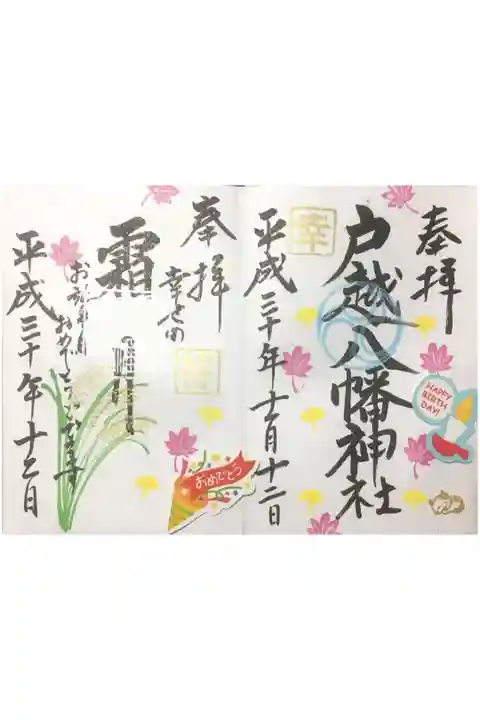 奉拝
戸越八幡神社
HAPPY
BIRTH
DAY!
幸
平成三十年十一月十二日
奉拝
幸せの
霜
お誕生日
おめでとうございます
おめでとう
平成三十年十一月十二日